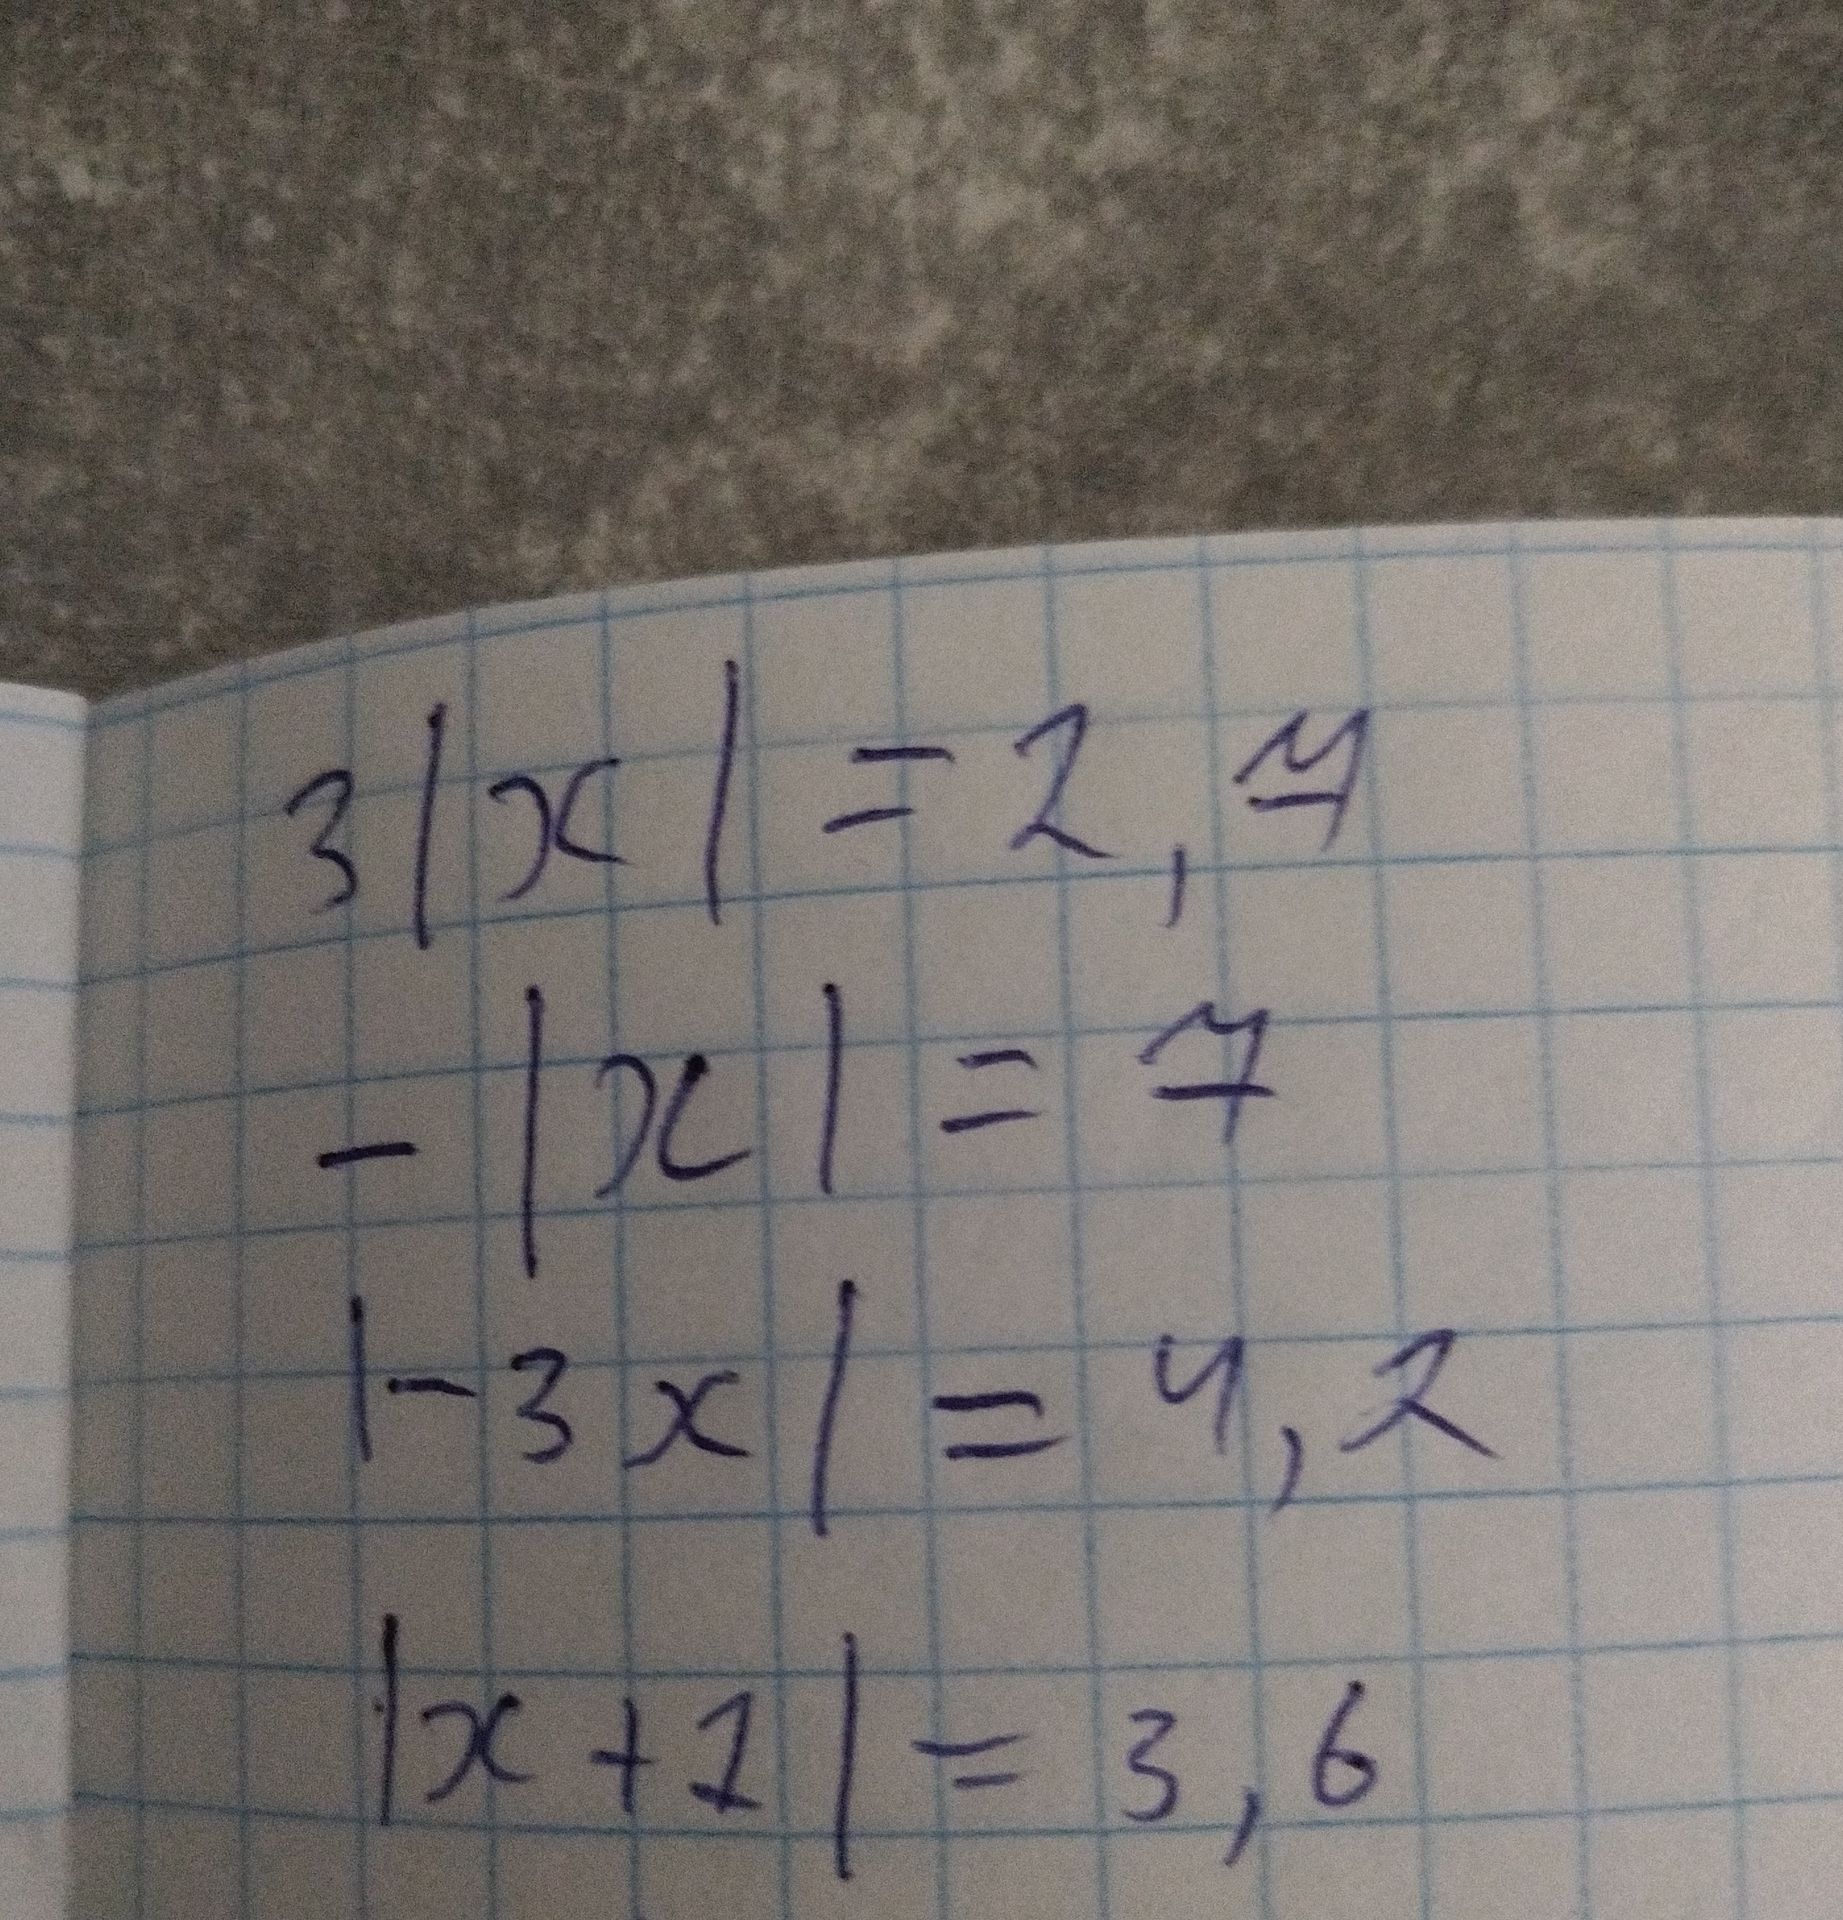 3|x| = 2,7
-|x| = 7
|-3x| = 4,2
|x+1| = 3,6